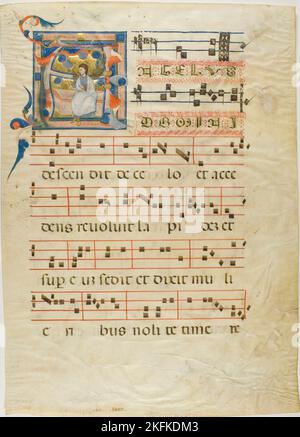 NGELVS
DOMINI
descen dit de ce lo et acce
dens revoluit la pi dez et
sup e uz sedit et dixit mu li
e ri bus noli te time re
alamy
Image ID: 2KFKDM3
www.alamy.com